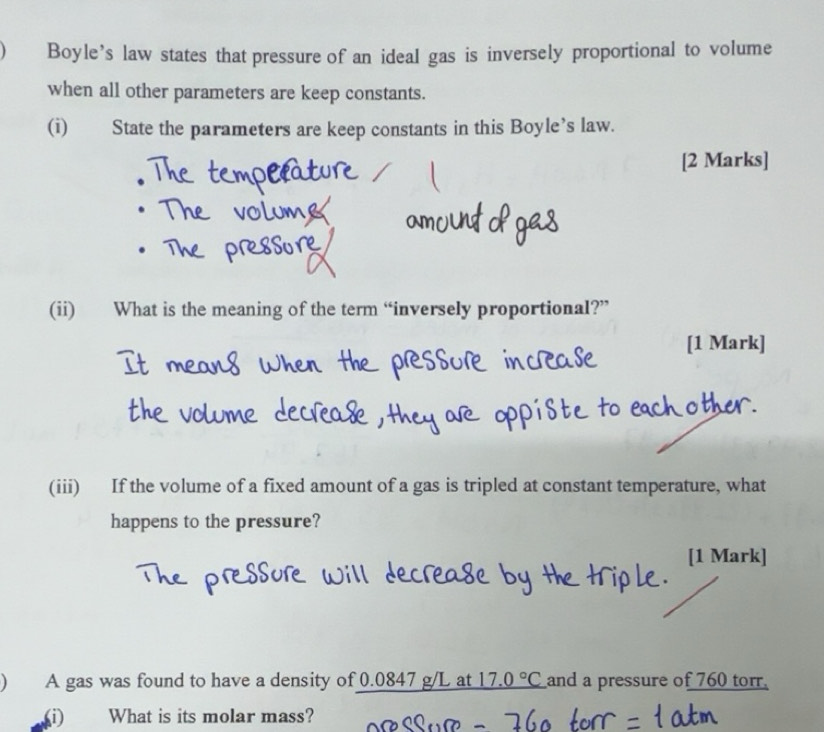 ) Boyle's law states that pressure of an ideal gas is inversely proportional to volume
when all other parameters are keep constants.
(i) State the parameters are keep constants in this Boyle's law.
[2 Marks]
• The temperature / 1
• The volume
• The pressure
amount of gas
(ii) What is the meaning of the term “inversely proportional?”
[1 Mark]
It means when the pressure increase
the volume decrease, they are oppiste to each other.
(iii) If the volume of a fixed amount of a gas is tripled at constant temperature, what
happens to the pressure?
[1 Mark]
The pressure will decrease by the triple.
) A gas was found to have a density of 0.0847 g/L at 17.0 °C and a pressure of 760 torr.
(i) What is its molar mass?
pressure = 760 torr = 1 atm